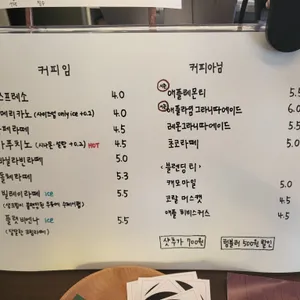 커피임
스프레소 4.0
메리카노 (사이즈업 only ice +0.2) 4.0
페라떼 4.5
푸치노 (시나몬·설탕 +0.2) HOT 4.5
바닐라빈라떼 5.0
돌체라떼 5.3
라떼 ice 5.5
플랫비엔나 ice 5.5
(달달한 크림라떼)
커피아님
애플레몬티 5.5
애플라임그라니따에이드 6.0
레몬그라니따에이드 5.5
초코라떼 5.0
<블렌딩 티>
캐모마일 5.0
코랄 머스캣 4.5
애플 히비스커스 4.5
샷추가 700원
텀블러 500원 할인